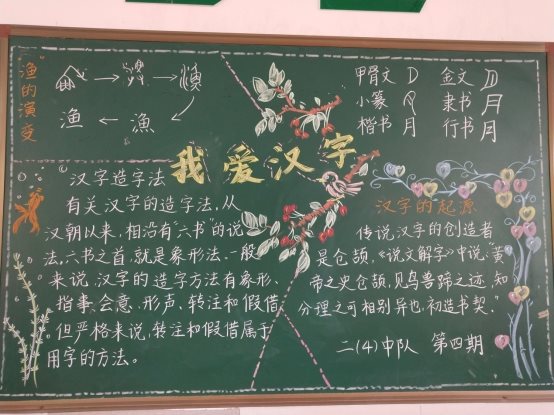 “渔”的演变
渔
渔
我爱汉字
甲骨文
金文
小篆
隶书
楷书 月
行书 月
汉字造字法
有关汉字的造字法,从
汉朝以来,相沿有“六书”的说
法,六书之首,就是象形法。一般
来说,汉字的造字方法有象形、
指事、会意、形声、转注和假借
。但严格来说,转注和假借属于
用字的方法。
汉字的起源
传说汉字的创造者
是仓颉,《说文解字》中说:“黄
帝之史仓颉,见鸟兽蹄之迹,知
分理之可相别异也,初造书契。”
二(4)中队 第四期